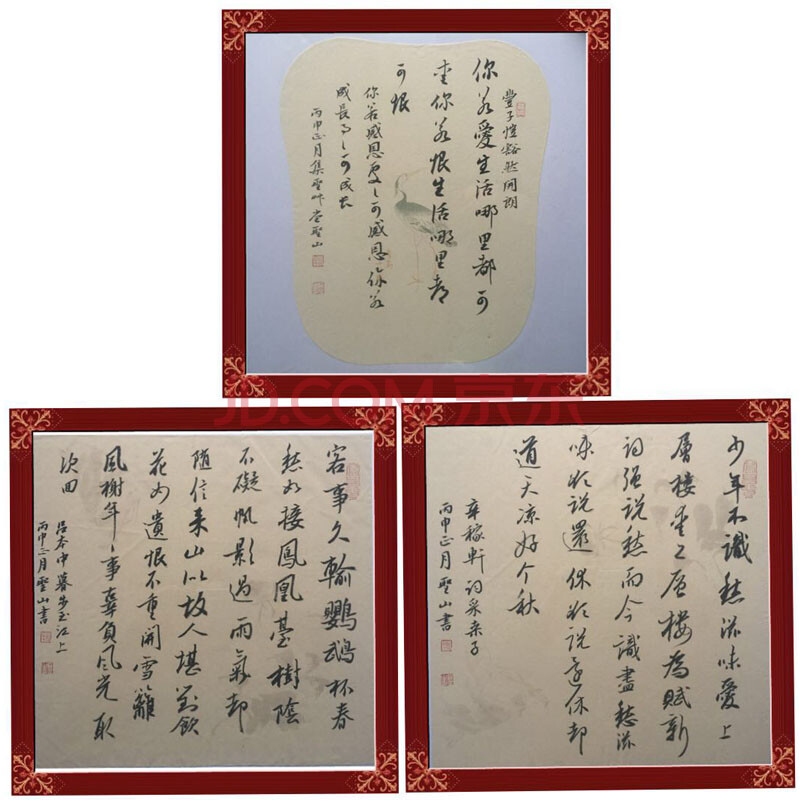 豐子愷豁然開朗
你若愛生活哪里都可
爱你若恨生活哪里都
可恨
你若感恩處〻可感恩你若
成長事〻可成长
丙申正月集聖艸堂聖山
JD.COM 京东
客事久輸鸚鵡杯春
愁如接鳳凰臺樹陰
不礙帆影過雨氣却
随信来山似故人堪對飲
花如遺恨不重開雪籬
風榭年〻事辜負风光取
次回
吕本中暮步至江上
丙申正月聖山書
少年不識愁滋味愛上
層楼爱上层楼為賦新
词强説愁而今識盡愁滋
味欲説還休欲説还休却
道天凉好个秋
辛稼軒词采桑子
丙申正月聖山書